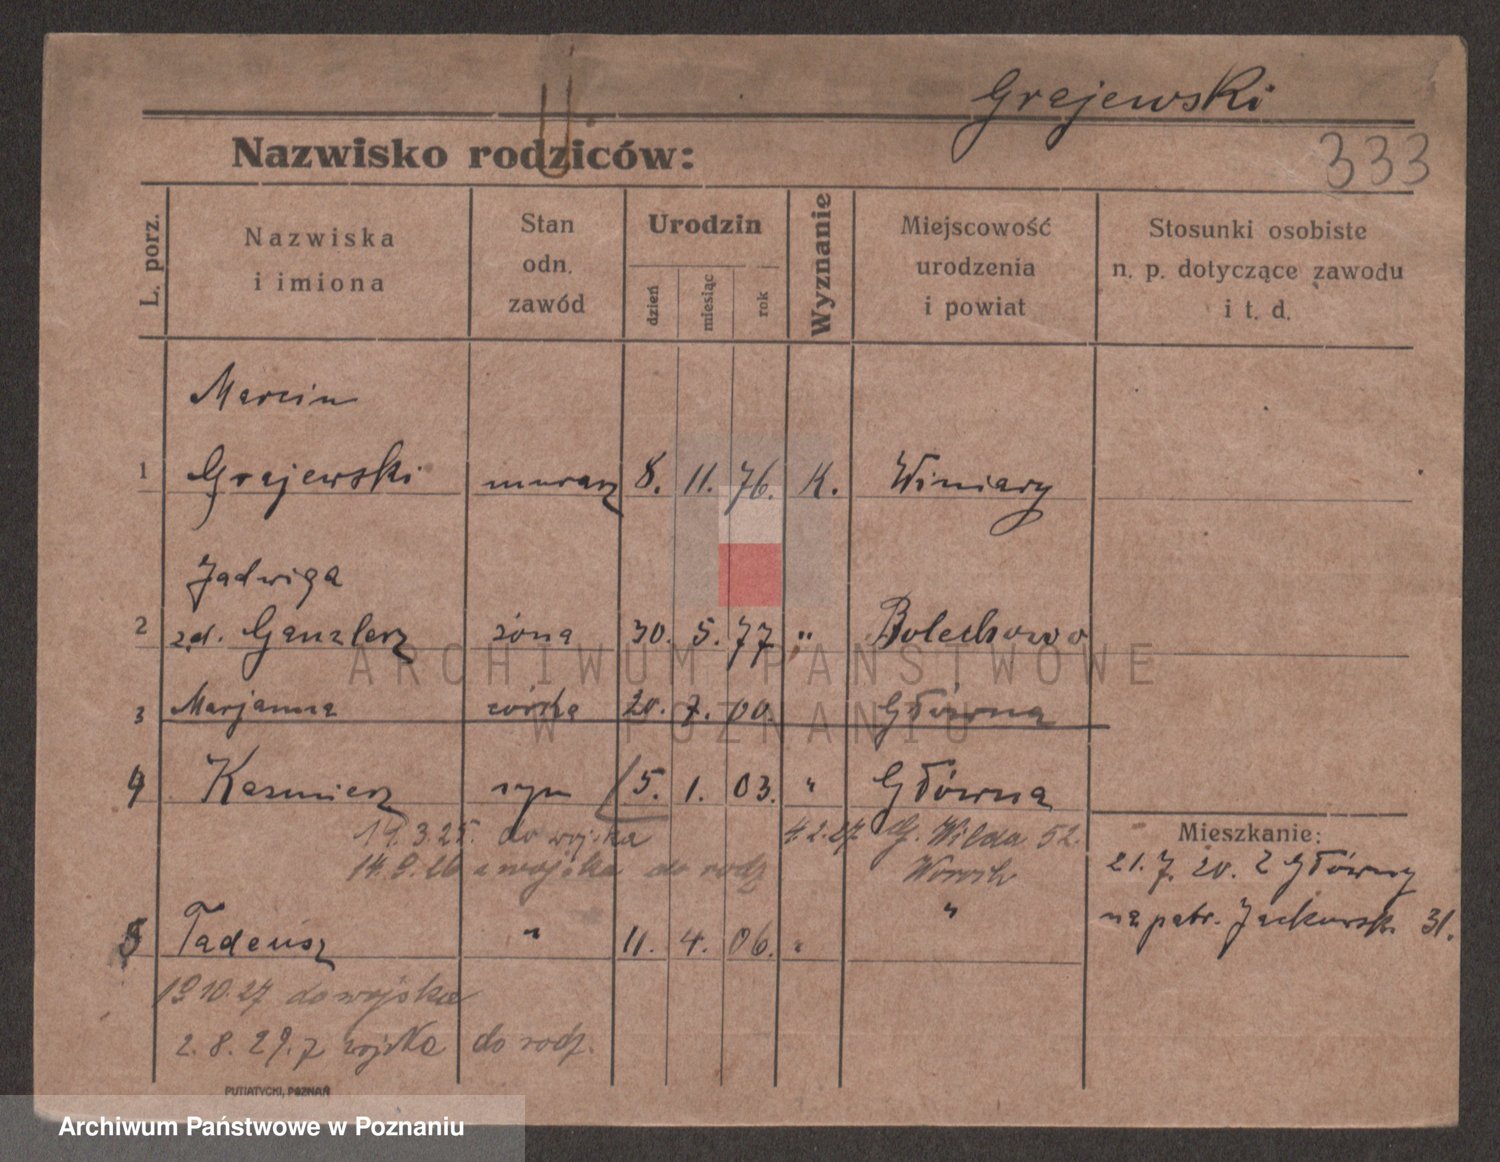 Grajewski
333
Nazwisko rodziców:
L. porz.
Nazwiska
i imiona
Stan
odn.
zawód
Urodzin
dzień
miesiąc
rok
Wyznanie
Miejscowość
urodzenia
i powiat
Stosunki osobiste
n. p. dotyczące zawodu
i t. d.
Marcin
1 Grajewski murarz 8. 11. 76. K. Winiary
Jadwiga
2 z d. Ganzlerz żona 30. 5. 77 " Bolechowo
3 Marjanna córka 20. 7. 00. Główna
4 Kazmierz syn 5. 1. 03. " Główna
19.3.25. do wojska 4.2.27 G. Wilda 52.
14.9.26 z wojska do rodz
Mieszkanie:
21. 7. 20. z Główny
na patr. Jackowsk. 31.
5 Tadeusz " 11. 4. 06. " "
19.10.27 do wojska
2. 8. 29. z wojska do rodz.
PUTIATYCKI, POZNAŃ
ARCHIWUM PAŃSTWOWE
W POZNANIU
Archiwum Państwowe w Poznaniu